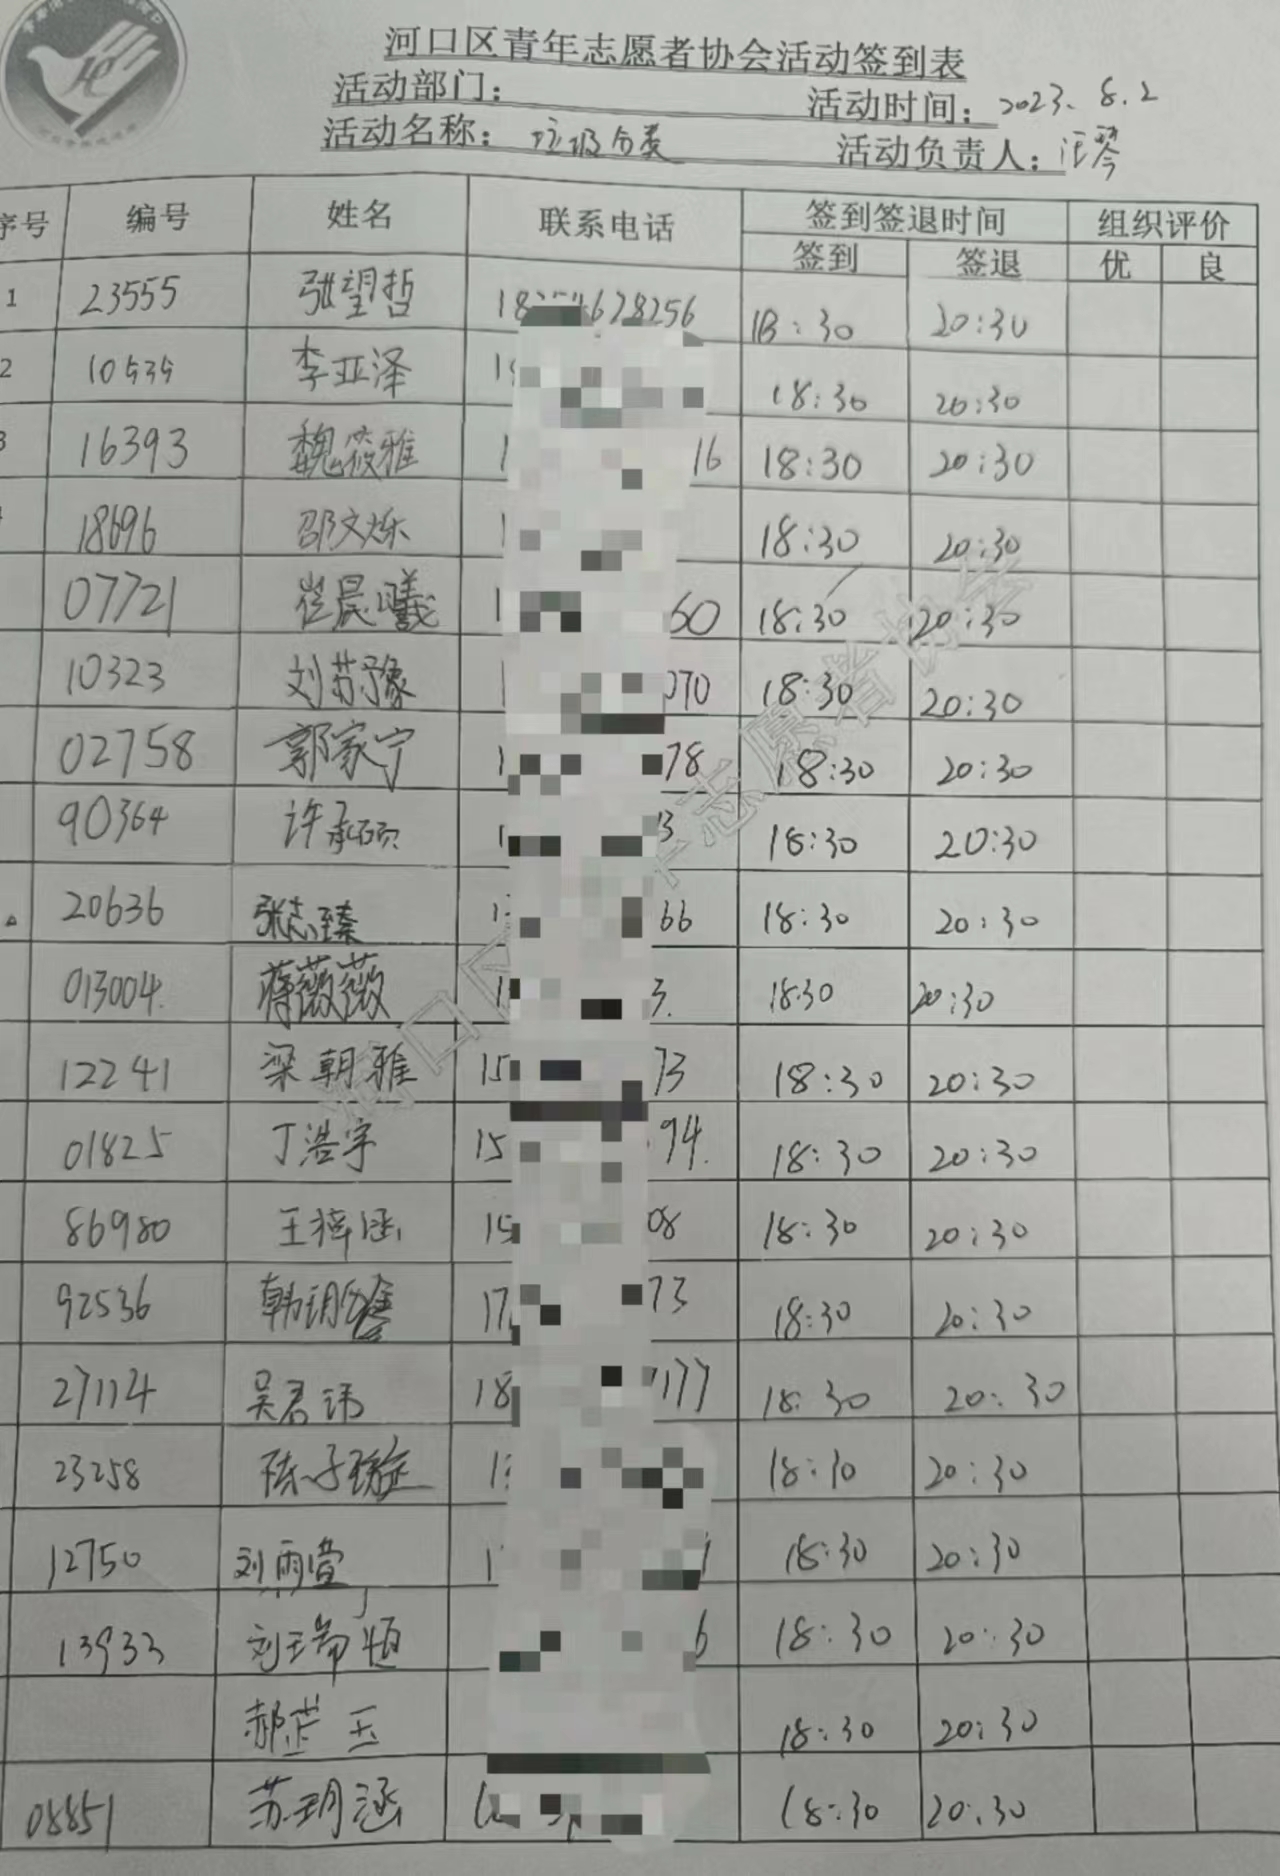 河口区青年志愿者协会活动签到表
活动部门： 活动时间：2023.8.2
活动名称：垃圾分类 活动负责人：汪琴
序号 编号 姓名 联系电话 签到签退时间 组织评价
签到 签退 优 良
1 23555 张望哲 628256 18:30 20:30
2 10535 李亚泽 18:30 20:30
3 16393 魏筱雅 1 16 18:30 20:30
18696 邵文烁 1 18:30 20:30
07721 崔晨曦 1 60 18:30 20:30
10323 刘苏豫 1 070 18:30 20:30
02758 郭家宁 1 78 18:30 20:30
90364 许承硕 1 3 18:30 20:30
20636 张志臻 1 66 18:30 20:30
013004. 蒋薇薇 1 3. 18:30 20:30
12241 梁朝雅 15 73 18:30 20:30
01825 丁浩宇 15 94. 18:30 20:30
86980 王梓涵 15 08 18:30 20:30
92536 韩玥 17 73 18:30 20:30
27114 吴君玮 18 1177 18:30 20:30
23258 陈子璇 1 18:30 20:30
12750 刘雨萱 1 18:30 20:30
13933 刘玉 6 18:30 20:30
郝芷玉 18:30 20:30
08851 苏玥涵 18:30 20:30
河口区青年志愿者协会